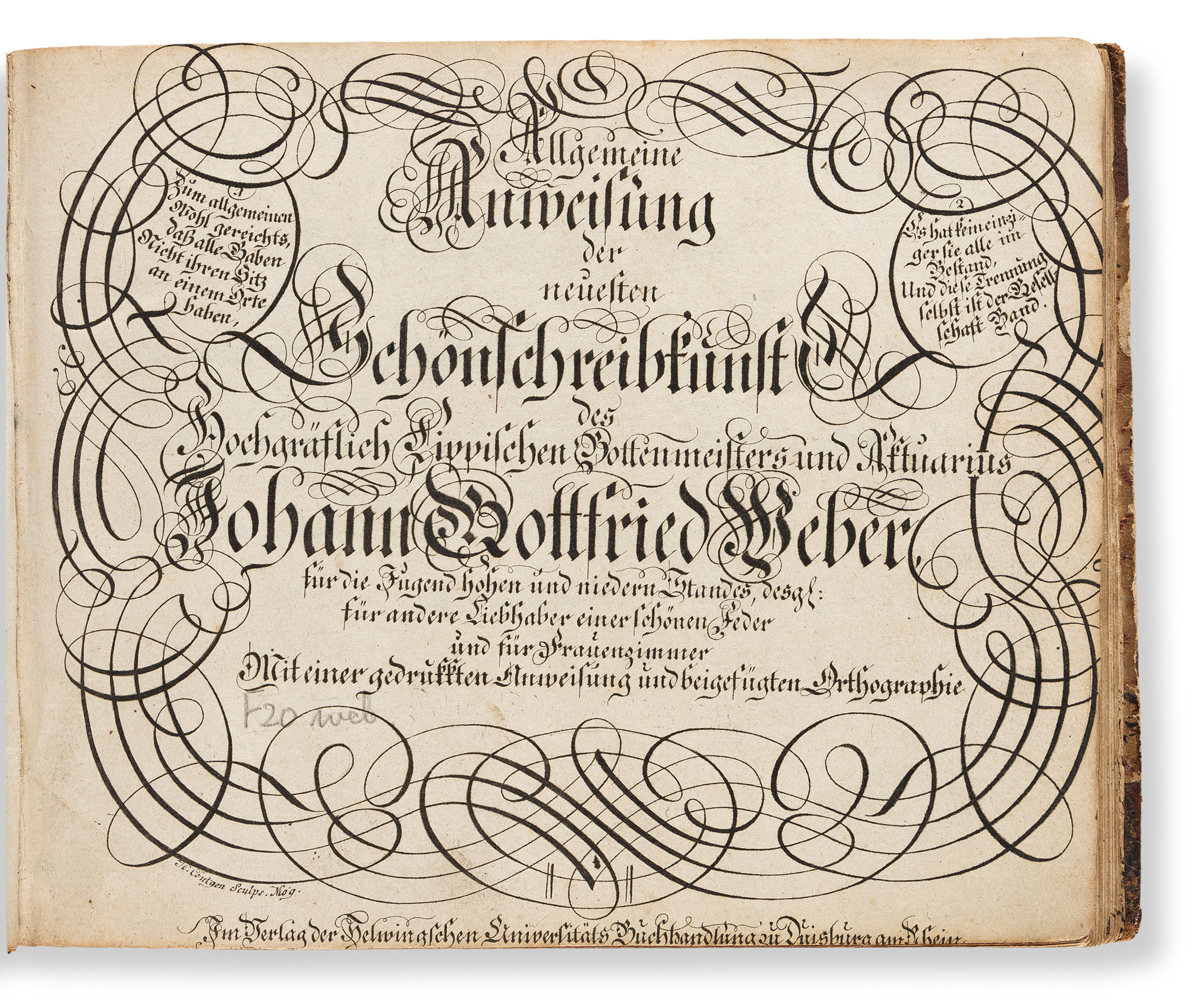 1
Zum allgemeinen
Wohl gereichts,
daß alle Gaben
Nicht ihren Sitz
an einem Orte
haben,
2
Es hat kein einzi=
ger sie alle im
Bestand,
Und diese Trennung
selbst ist der Gesell
schaft Band.
Allgemeine
Anweisung
der
neuesten
Schönschreibkunst
des
Hochgräflich Lippischen Bottenmeisters und Aktuarius
Johann Gottfried Weber
für die Jugend hohen und niedern Standes, desgl:
für andere Liebhaber einer schönen Feder
und für Frauenzimmer
Mit einer gedrukkten Anweisung und beigefügten Orthographie
F20 web
Cöntgen Sculps. Mog.
Im Verlag der Helwingschen Universitäts Buchhandlung zu Duisburg am Rhein